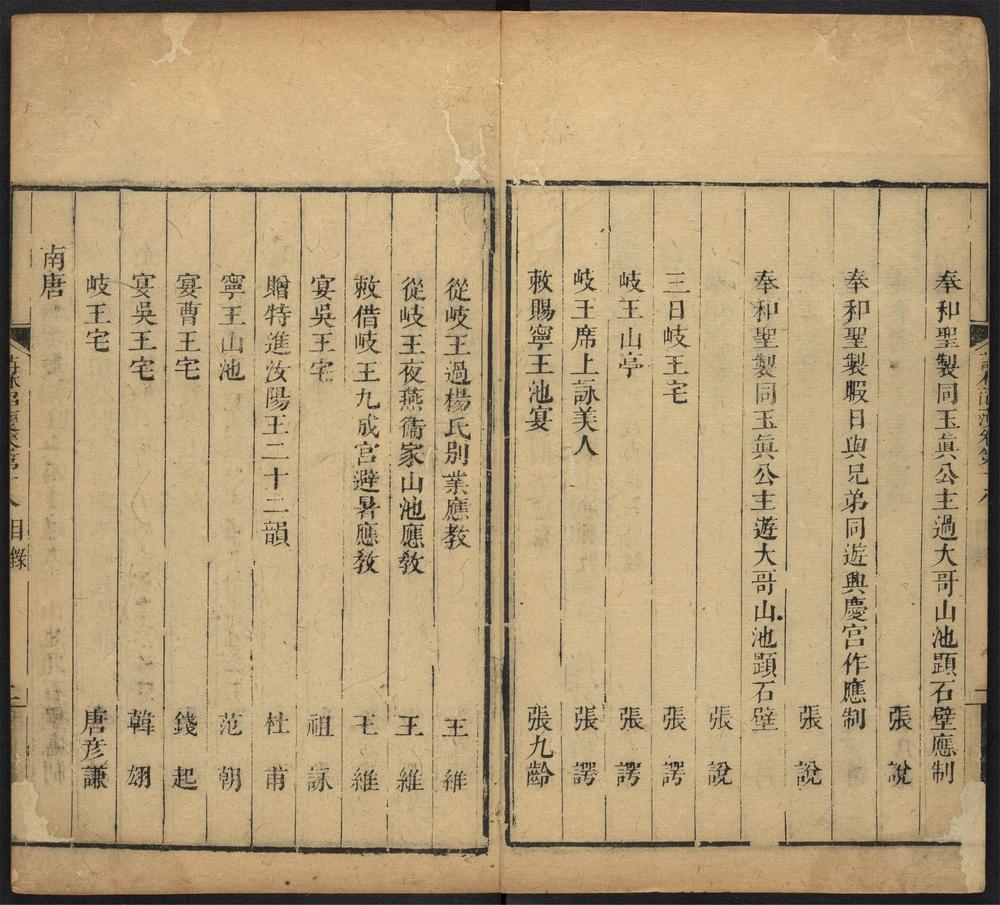 奉和聖製同玉眞公主過大哥山池題石壁應制
張說
奉和聖製暇日與兄弟同遊興慶宮作應制
張說
奉和聖製同玉眞公主遊大哥山池題石壁
張說
三日岐王宅 張諤
岐王山亭 張諤
岐王席上詠美人 張諤
敕賜寧王池宴 張九齡
從岐王過楊氏別業應教 王維
從岐王夜燕衞家山池應教 王維
敕借岐王九成宮避暑應教 王維
宴吳王宅 祖詠
贈特進汝陽王二十二韻 杜甫
寧王山池 范朝
宴曹王宅 錢起
宴吳王宅 韓翃
岐王宅 唐彥謙
南唐
目錄 二